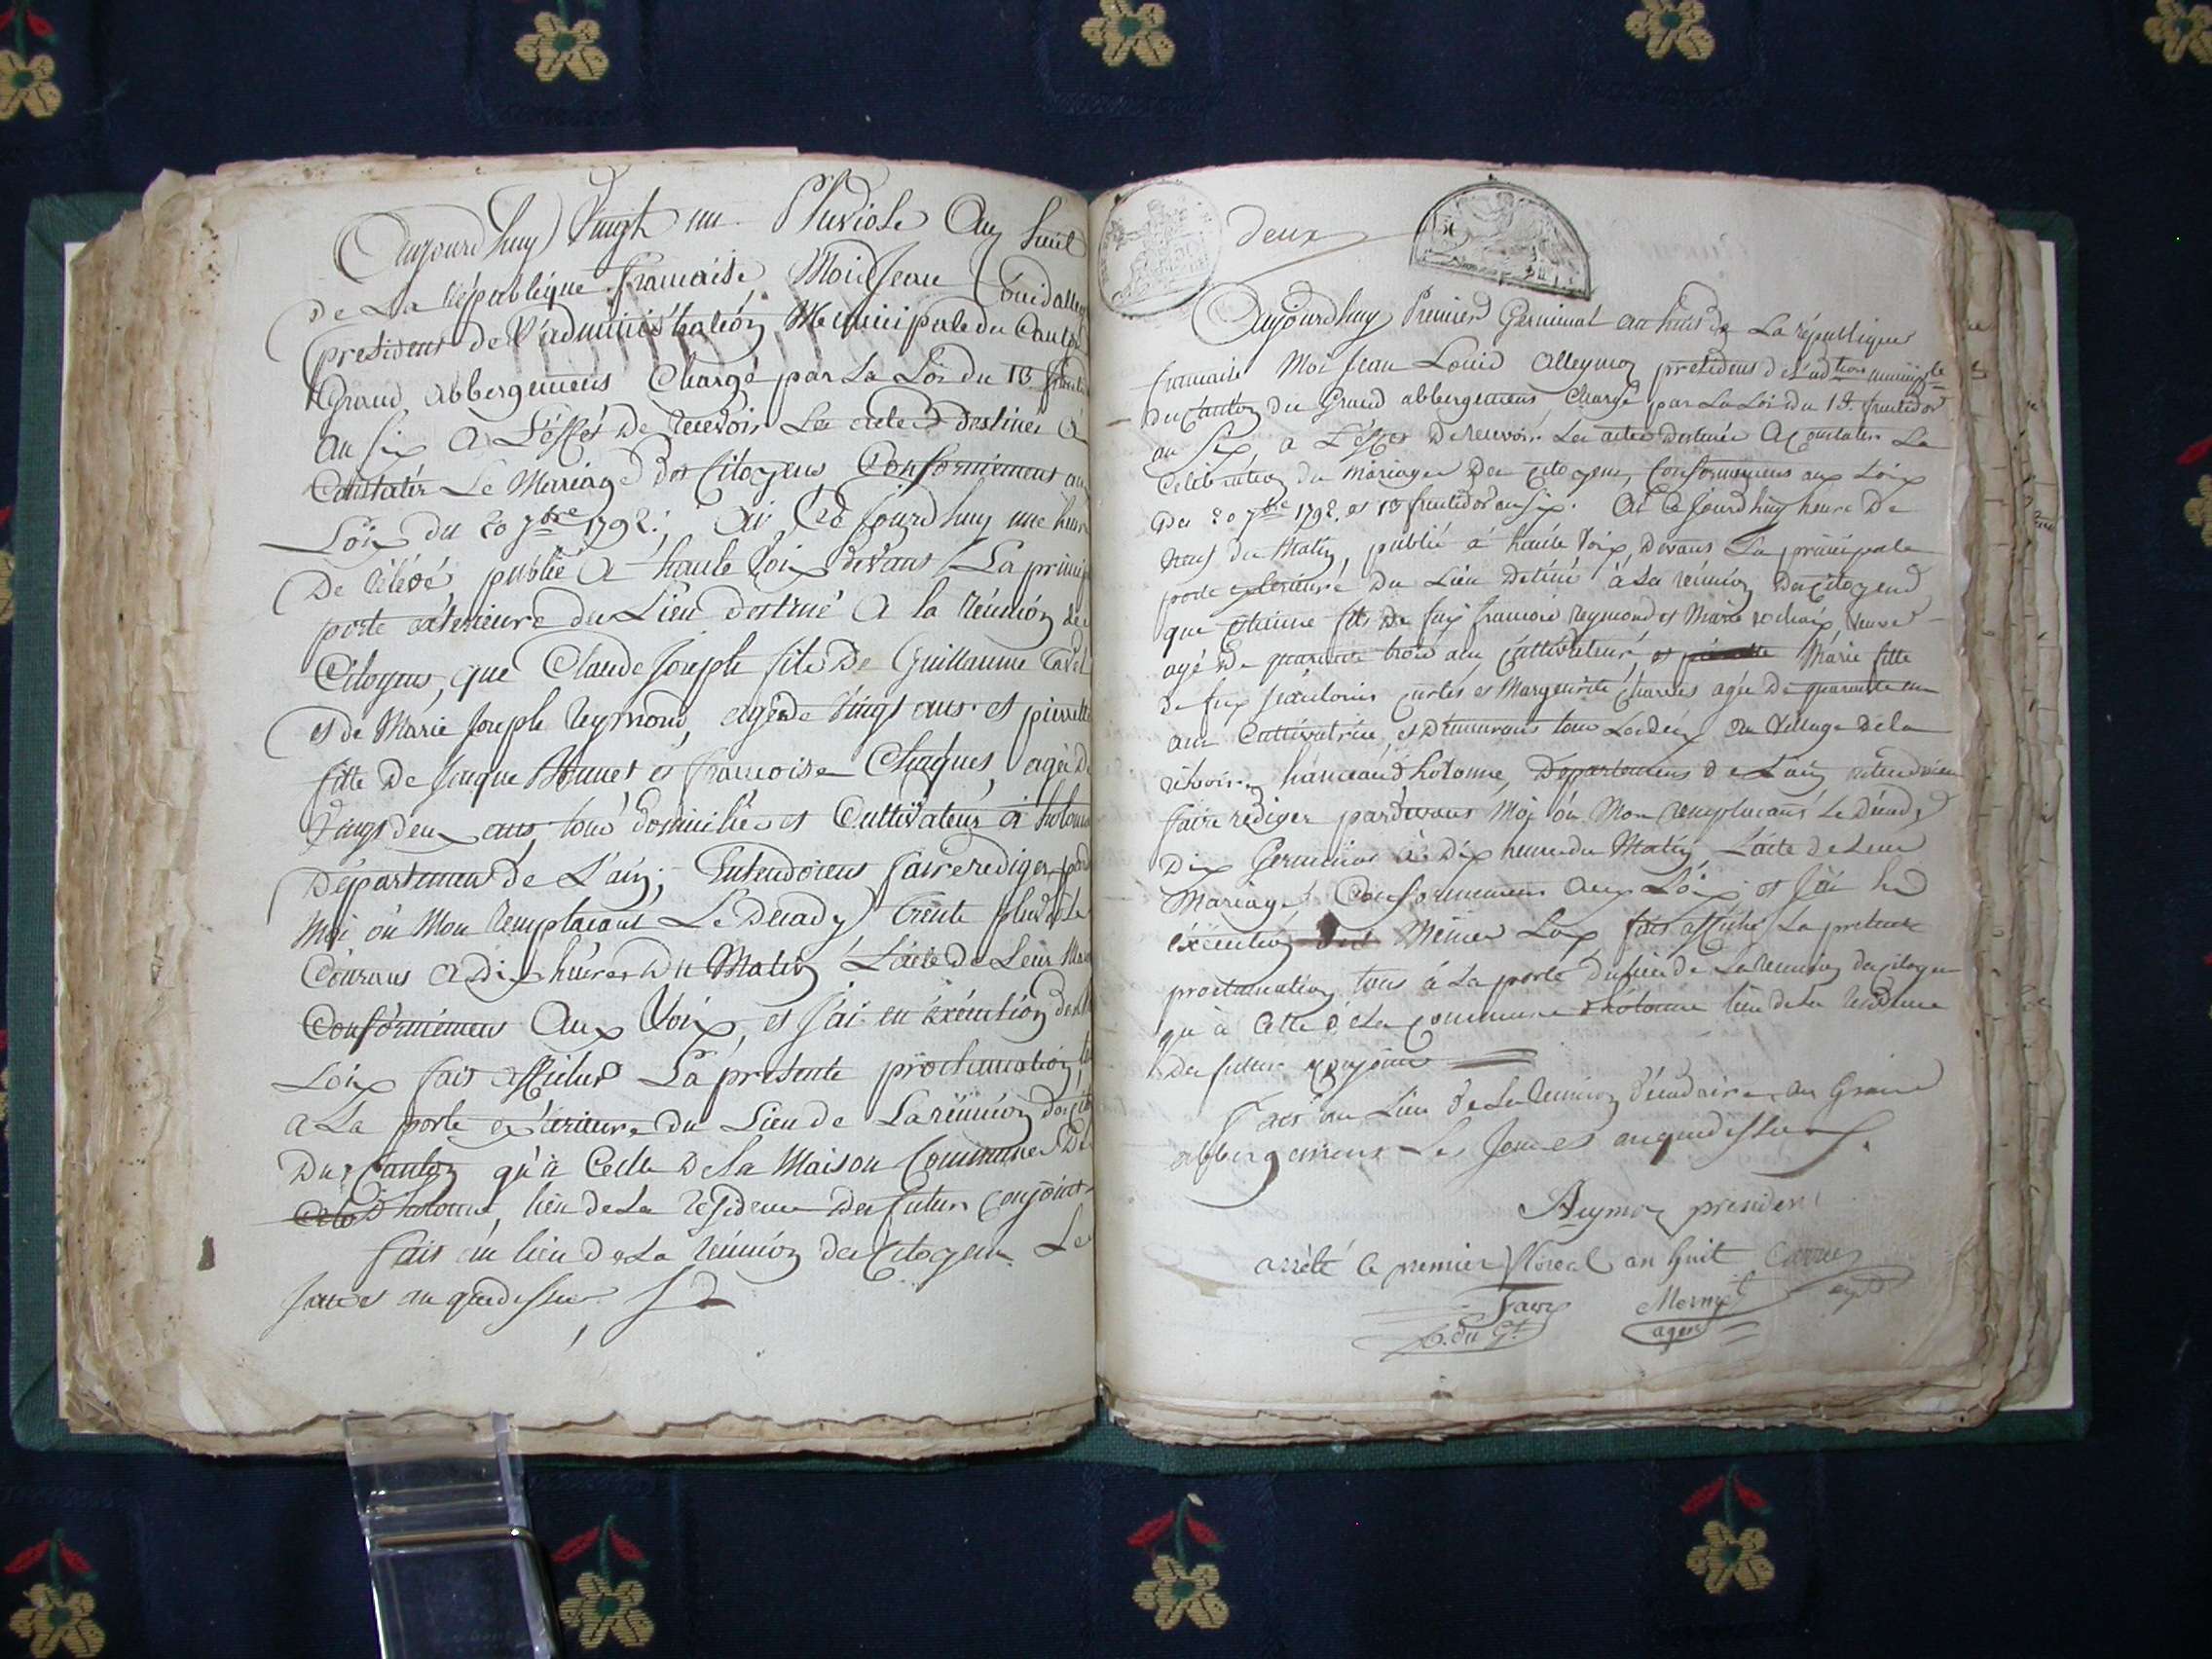 Aujourd'huy Vingt un Pluviose An huit
de La république française Moi Jean Louis alley
president de L'administration Municipale du Canton
Grand abbergement Chargé par La Loi du 13 fructi
an Six a L'éffét de recevoir Les actes destinés a
Constater Le Mariage des Citoyens Conformement au
Loix du 20 7bre 1792; Ai Ce Jourd'huy une heure
De rélévé publié a haute Voix devant La princip
porte éxterieure du Lieu destiné a la réunion des
Citoyens, que Claude Joseph fils De Guillaume
et de Marie Joseph Reymond, agé de Vingt ans et pierrette
fille De Jacque et francoise Chaques, agée de
Vingt deux ans, tous domiciliés et Cultivateurs à holonne
Département de L'ain; Entendoient faire rediger par
Moi ou Mon remplacant Le Decady trente pluviose
Courant a Dix heures Du Matin L'acte De Leur Mar
Conformement Aux Loix, et J'ai en éxécution des
Loix fait afficher La présente proclamation,
a La porte exterieure du Lieu de La réunion des cito
Du Canton qu'à Celle De la Maison Commune De
d'holonne, lieu de La residence Des futurs Conjoint
fait au lieu de La réunion des Citoyens Le
Jour et an que dessus
deux
Aujourdhuy Premier Germinal an huit de La république
francaise Moi Jean Louis Alleymoz president de L'adtion municiple
du Canton du Grand abbergement Chargé par La Loi du 13 fructidor
an Six, a L'éffet De recevoir Les actes destinés a Constater La
Celebration du mariage Des Citoyens, Conformement aux Loix
Des 20 7bre 1792 et 13 fructidor an Six. Ai Ce Jourd'huy heure De
Neuf du Matin, publié à haute Voix, Devant La principale
porte exterieure Du Lieu Destiné à La réunion Des Citoyens
que Etienne fils De feu francois Reymond et Marie rochaix veuve
agé De quarante trois ans Cultivateur, et Marie fille
de feu et Marguerite Charvet agée De quarante un
ans Cultivatrice, et Demeurant tous Les deux au Village De la
hameau d'holonne, Departement de L'ain entendoient
faire rediger pardevant Moi ou Mon remplacant Le Décady
Dix Germinal à Dix heures du Matin, L'acte de Leur
Mariage Conformement Aux Loix, et J'ai En
éxécution des Mêmes Loix fait afficher La présente
proclamation tant à La porte du lieu de La réunion des citoyens
qu'à Celle de La Commune d'holonne lieu de La residence
Des futurs Conjoints
Fait au Lieu de La réunion décadaire au Grand
abbergement Les Jour et an que dessus
Aleymoz president
arrêté le premier floreal an huit
Favre
C. du Gt
agent